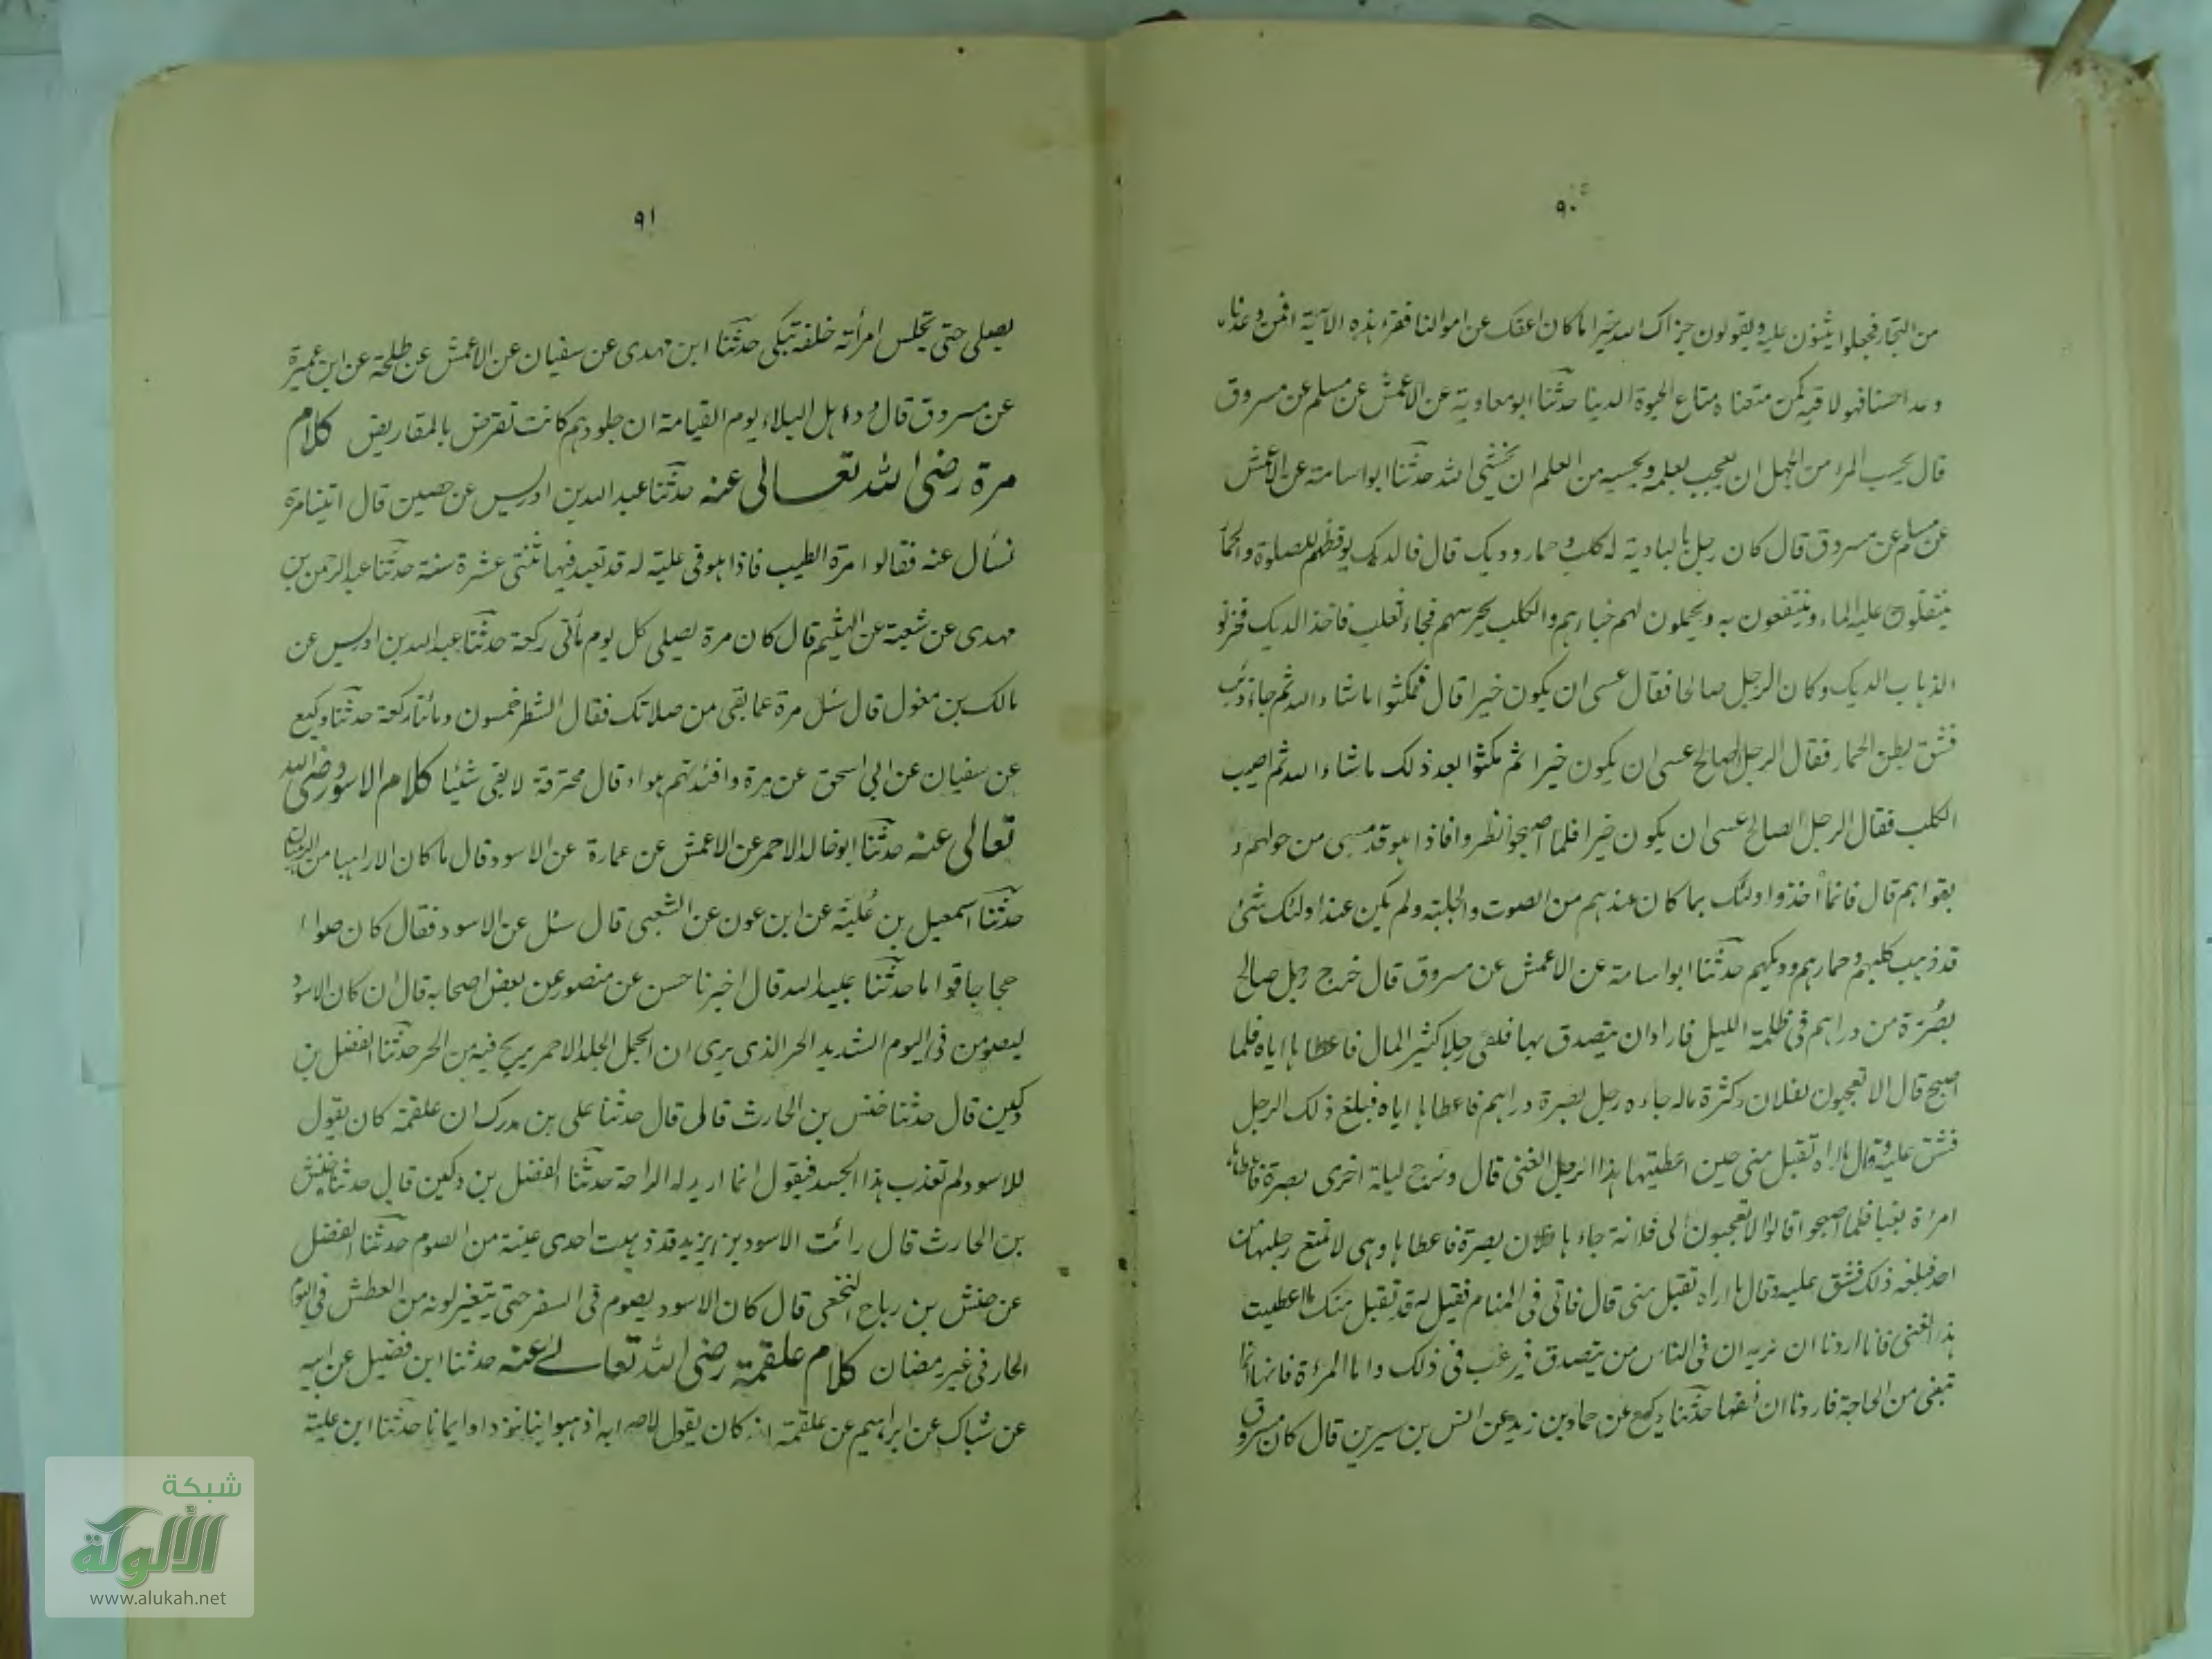 ٩٠
من التجار فجعلوا يثنون عليه ويقولون جزاك الله خيرا ما كان اعفك عن اموالنا فقرء هذه الآية افمن وعدناه
وعدا حسنا فهو لاقيه كمن متعناه متاع الحيوة الدنيا حدثنا ابو معاوية عن الاعمش عن مسلم عن مسروق
قال بحسب المرء من الجهل ان يعجب بعلمه وبحسبه من العلم ان يخشى الله حدثنا ابو اسامة عن الاعمش
عن مسلم عن مسروق قال كان رجل بالبادية له كلب وحمار وديك قال فالديك يوقظهم للصلوة والحمار
ينقلون عليه الماء وينتفعون به ويحملون لهم خباءهم والكلب يحرسهم فجاء ثعلب فاخذ الديك فحزنوا
لذهاب الديك وكان الرجل صالحا فقال عسى ان يكون خيرا قال فمكثوا ما شاء الله ثم جاء ذئب
فشق بطن الحمار فقال الرجل الصالح عسى ان يكون خيرا ثم مكثوا بعد ذلك ما شاء الله ثم اصيب
الكلب فقال الرجل الصالح عسى ان يكون خيرا فلما اصبحوا نظروا فاذا هو قد سبي من حولهم و
بقوا هم قال فانما اخذوا اولئك بما كان عندهم من الصوت والجلبة ولم يكن عند اولئك شئ
قد ذهب كلبهم وحمارهم وديكهم حدثنا ابو اسامة عن الاعمش عن مسروق قال خرج رجل صالح
بصُرّة من دراهم في ظلمة الليل فاراد ان يتصدق بها فلقى رجلا كثير المال فاعطاها اياه فلما
اصبح قال الا تعجبون لفلان وكثرة ماله جاءه رجل بصرة دراهم فاعطاها اياه فبلغ ذلك الرجل
فشق عليه وقال ما اراه تقبل منى حين اعطيتها هذا الرجل الغنى قال وخرج ليلة اخرى بصرة فاعطاها
امرأة بغيا فلما اصبحوا قالوا الا تعجبون الى فلانة جاءها فلان بصرة فاعطاها وهى لا تمنع رجليها من
احد فبلغه ذلك فشق عليه وقال ما اراه تقبل منى قال فاتى في المنام فقيل له قد تقبل منك ما اعطيت
هذا الغنى فانا اردنا ان نريه ان في الناس من يتصدق فيرغب في ذلك واما المرأة فانها انما
تبغى من الحاجة فاردنا ان نعفها حدثنا وكيع عن حماد بن زيد عن انس بن سيرين قال كان مسروق
٩١
يصلى حتى تجلس امرأته خلفه تبكى حدثنا ابن مهدى عن سفيان عن الاعمش عن طلحة عن ابن عميرة
عن مسروق قال ود اهل البلاء يوم القيامة ان جلودهم كانت تقرض بالمقاريض كلام
مرة رضى الله تعالى عنه حدثنا عبد الله بن ادريس عن حصين قال اتينا مرة
نسأل عنه فقالوا مرة الطيب فاذا هو في علية له قد تعبد فيها ثنتى عشرة سنة حدثنا عبد الرحمن بن
مهدى عن شعبة عن الهيثم قال كان مرة يصلى كل يوم مأتى ركعة حدثنا عبد الله بن ادريس عن
مالك بن مغول قال سئل مرة عما بقى من صلاتك فقال الشطر خمسون ومائتا ركعة حدثنا وكيع
عن سفيان عن ابى اسحق عن مرة وافئدتهم هواء قال محترقة لا تعى شيئا كلام الاسود رضى الله
تعالى عنه حدثنا ابو خالد الاحمر عن الاعمش عن عمارة عن الاسود قال ما كان الا راهبا من الرهبان
حدثنا اسمعيل بن عُلية عن ابن عون عن الشعبى قال سئل عن الاسود فقال كان صواما
حجاجا قواما حدثنا عبيد الله قال اخبرنا حسن عن منصور عن بعض اصحابه قال ان كان الاسود
ليصومن في اليوم الشديد الحر الذى يرى ان الجمل الجلد الاحمر يريح فيه من الحر حدثنا الفضل بن
دكين قال حدثنا حنش بن الحارث قال قال حدثنا على بن مدرك ان علقمة كان يقول
للاسود لم تعذب هذا الجسد فيقول انما اريد له الراحة حدثنا الفضل بن دكين قال حدثنا حنش
بن الحارث قال رائت الاسود بن يزيد قد ذهبت احدى عينيه من الصوم حدثنا الفضل
عن حنش بن رباح النخعى قال كان الاسود يصوم في السفر حتى يتغير لونه من العطش في اليوم
الحار في غير رمضان كلام علقمة رضى الله تعالى عنه حدثنا ابن فضيل عن ابيه
عن شباك عن ابراهيم عن علقمة انه كان يقول لاصحابه اذهبوا بنا نزداد ايمانا حدثنا ابن علية
شبكة
الألوكة
www.alukah.net